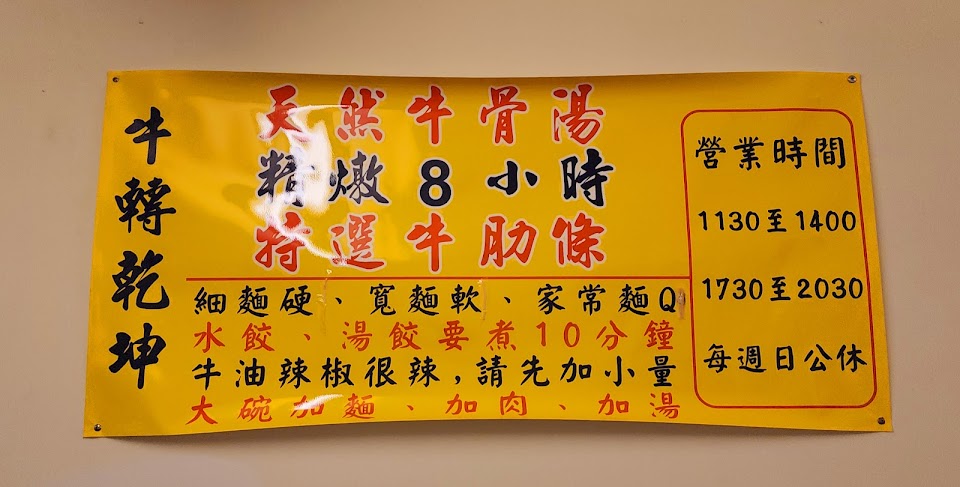 牛轉乾坤
天然牛骨湯
精燉8小時
特選牛肋條
細麵硬、寬麵軟、家常麵Q
水餃、湯餃要煮10分鐘
牛油辣椒很辣,請先加小量
大碗加麵、加肉、加湯
營業時間
1130至1400
1730至2030
每週日公休